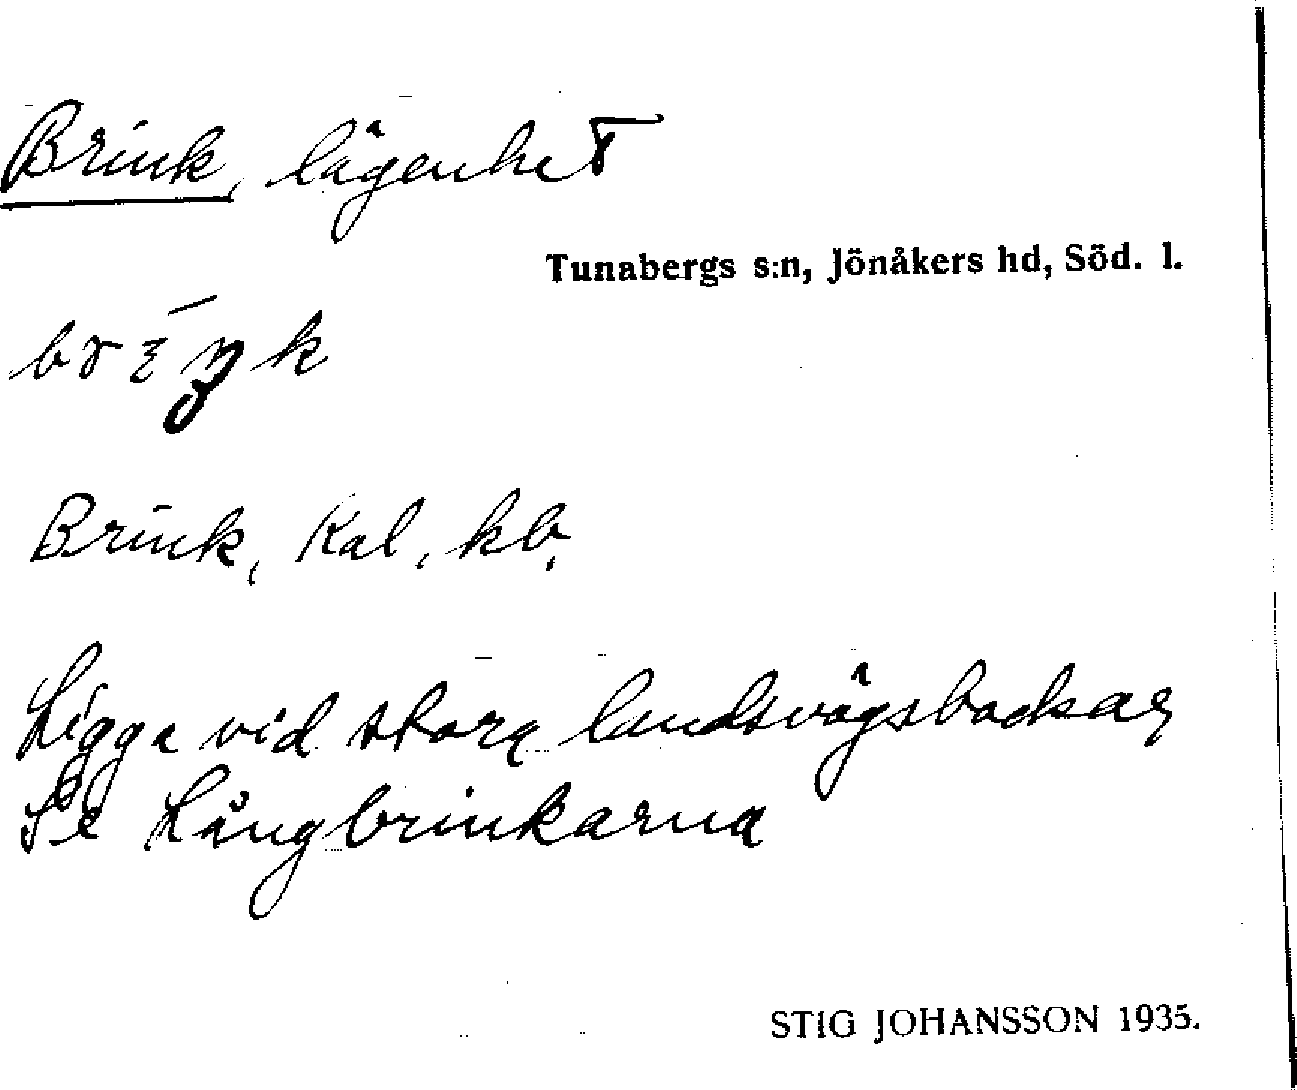 Brink, lägenhet
Tunabergs s:n, Jönåkers hd, Söd. l.
Brink, Kal, kb,
Ligga vid stora landsvägsbackar
Se Långbrinkarna
STIG JOHANSSON 1935.